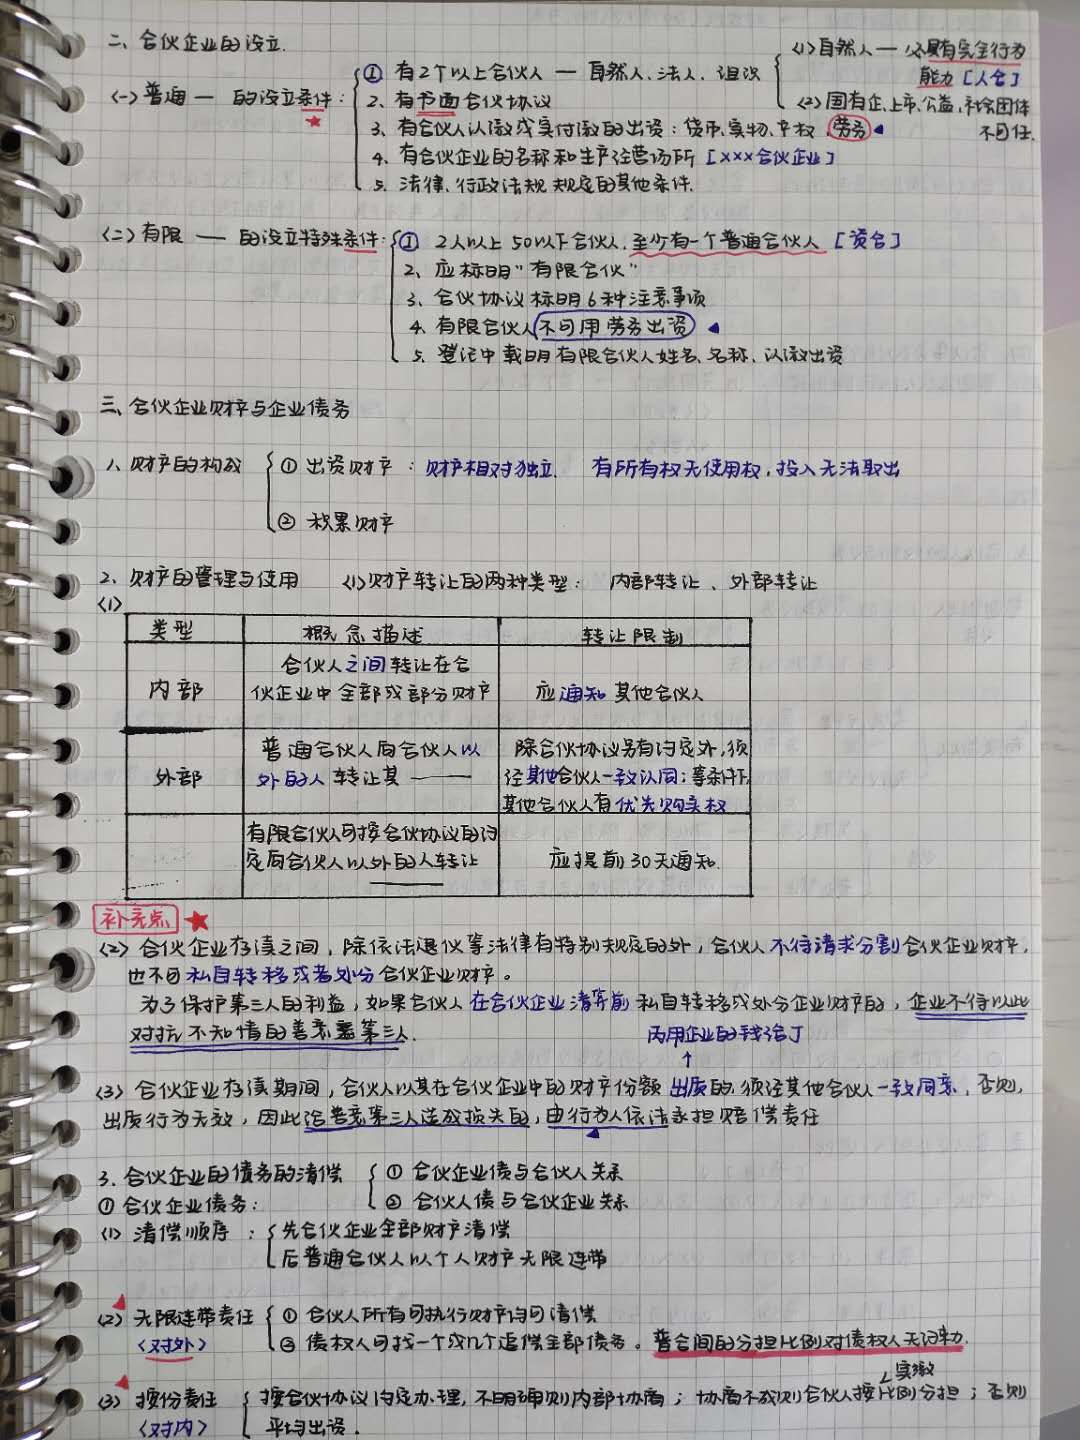 二、合伙企业的设立.
(一)普通一 的设立条件:
① 有2个以上合伙人 — 自然人、法人、组织
(1)自然人 — 必具有完全行为
能力[人合]
(2)国有企、上市、公益、社会团体
不可任.
2、有书面合伙协议
3、有合伙人认缴或实付缴的出资:货币、实物、产权、劳务
4、有合伙企业的名称和生产经营场所[×××合伙企业]
5、法律、行政法规规定的其他条件.
(二)有限 — 的设立特殊条件:
① 2人以上50以下合伙人,至少有一个普通合伙人[资合]
2、应标明"有限合伙"
3、合伙协议标明6种注意事项
4、有限合伙人不可用劳务出资
5、登记中载明有限合伙人姓名、名称、认缴出资
三、合伙企业财产与企业债务
1、财产的构成
① 出资财产:财产相对独立. 有所有权无使用权,投入无法取出
② 积累财产
2、财产的管理与使用 (1)财产转让的两种类型: 内部转让、外部转让
(1)
类型 概念描述 转让限制
内部 合伙人之间转让在合
伙企业中全部或部分财产 应通知其他合伙人
外部 普通合伙人向合伙人以
外的人转让其——
除合伙协议另有约定外,须
经其他合伙人一致认同;等条件下,
其他合伙人有优先购买权
有限合伙人可按合伙协议的约
定向合伙人以外的人转让
应提前30天通知.
补充点★
(2)合伙企业存续之间,除依法退伙等法律有特别规定的外,合伙人不得请求分割合伙企业财产,
也不可私自转移或者处分合伙企业财产。
为了保护第三人的利益,如果合伙人在合伙企业清算前私自转移或处分企业财产的,企业不得以此
对抗不知情的善意第三人.
丙用企业的钱给丁
(3)合伙企业存续期间,合伙人以其在合伙企业中的财产份额出质的,须经其他合伙人一致同意,否则,
出质行为无效,因此给善意第三人造成损失的,由行为人依法承担赔偿责任
3.合伙企业的债务的清偿
① 合伙企业债与合伙人关系
② 合伙人债与合伙企业关系
①合伙企业债务:
(1)清偿顺序:
先合伙企业全部财产清偿
后普通合伙人以个人财产无限连带
(2)无限连带责任
(对外)
① 合伙人所有可执行财产均可清偿
② 债权人可找一个或几个追偿全部债务。普合间的分担比例对债权人无约束力.
实缴
(3)按份责任
(对内)
按合伙协议约定办理,不明确则内部协商;协商不成则合伙人按比例分担;否则
平均出资.